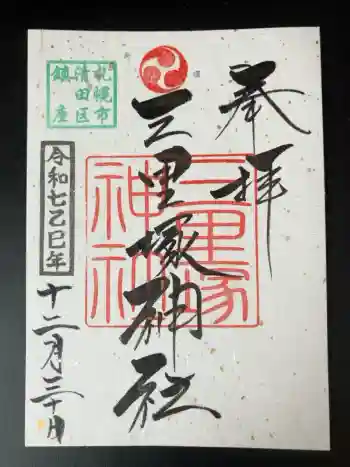 奉拝
三里塚神社
三里塚
神社
札幌市
清田区
鎮座
令和七乙巳年
十二月三十日